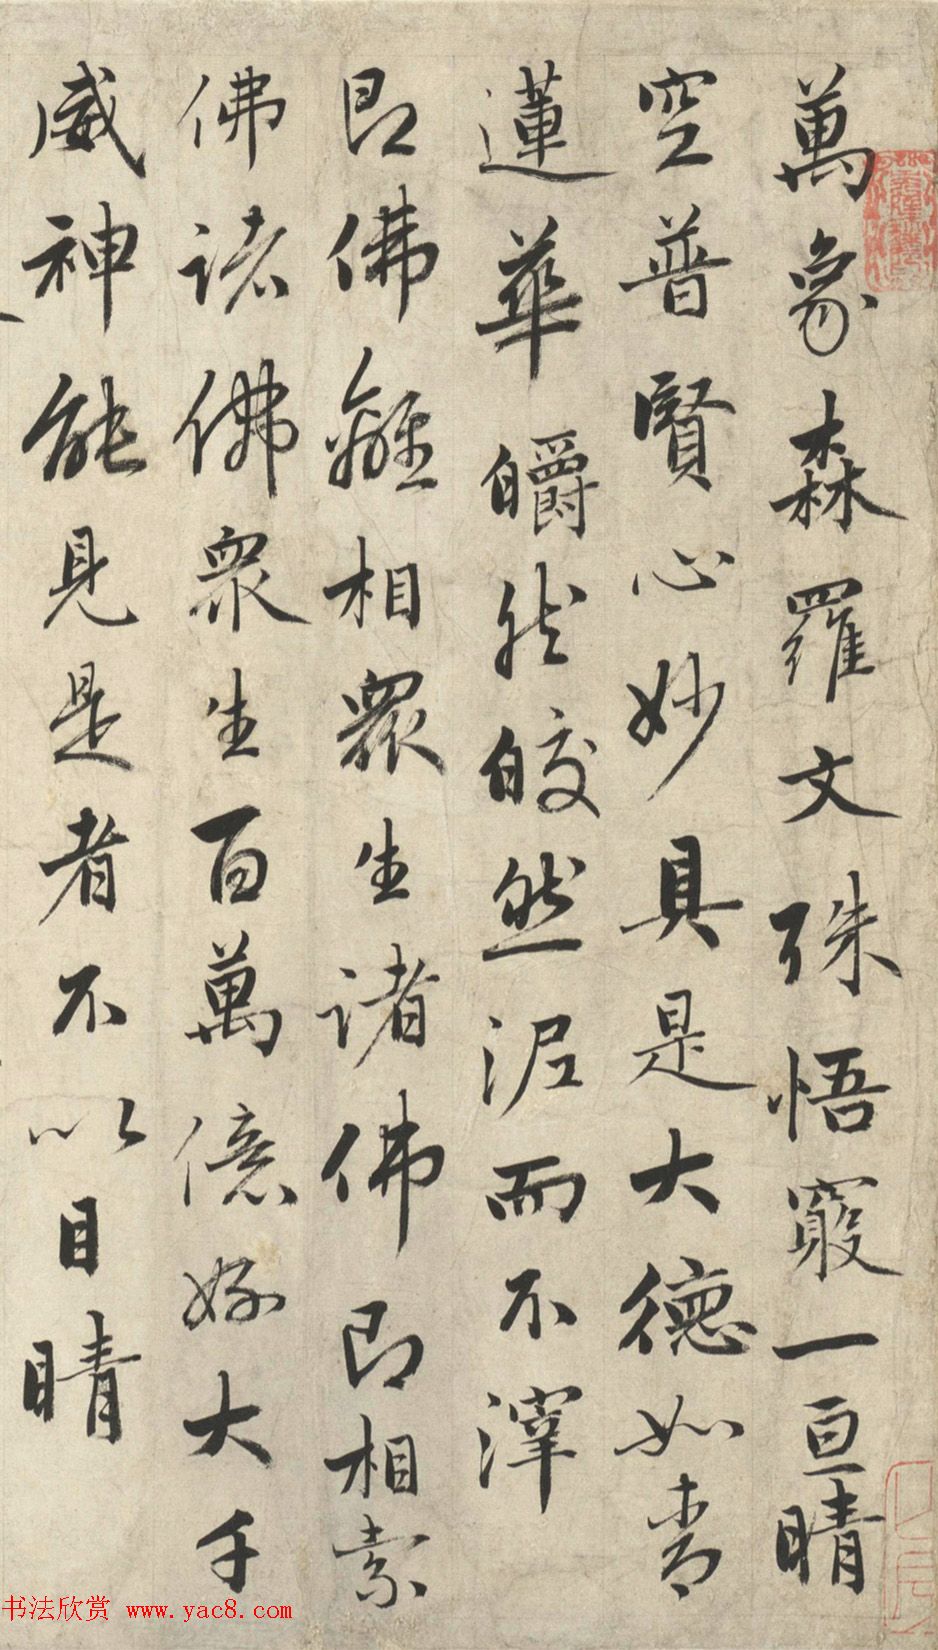 萬象森羅文殊悟窽一亘晴
空普賢心妙具是大德如青
蓮華皭然皎然泥而不滓
即佛離相眾生諸佛即相索
佛諸佛眾生百萬億好大千
威神能見是者不以目睛
书法欣赏 www.yac8.com